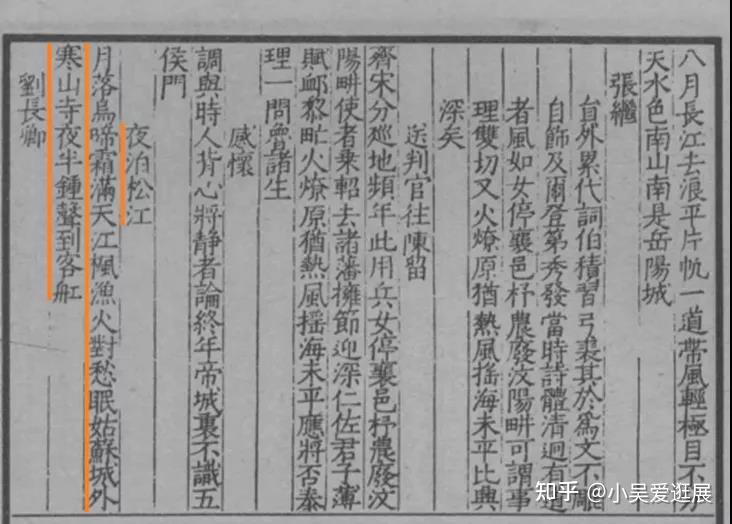 八月長江去浪平片帆一道帶風輕極目不分
天水色南山南是岳陽城
張繼
員外累代詞伯積習弓裘其於爲文不雕
自飾及爾登第秀發當時詩體清迥有道
者風如女停襄邑杼農廢汶陽畊可謂事
理雙切又火燎原猶熱風搖海未平比興
深矣
送判官往陳留
齊宋分巡地頻年此用兵女停襄邑杼農廢汶
陽畊使者乘軺去諸藩擁節迎深仁佐君子薄
賦卹黎甿火燎原猶熱風搖海未平應將否泰
理一問魯諸生
感懷
調與時人背心將靜者論終年帝城裏不識五
侯門
夜泊松江
月落烏啼霜滿天江楓漁火對愁眠姑蘇城外
寒山寺夜半鍾聲到客舡
劉長卿
知乎 @小吴爱逛展